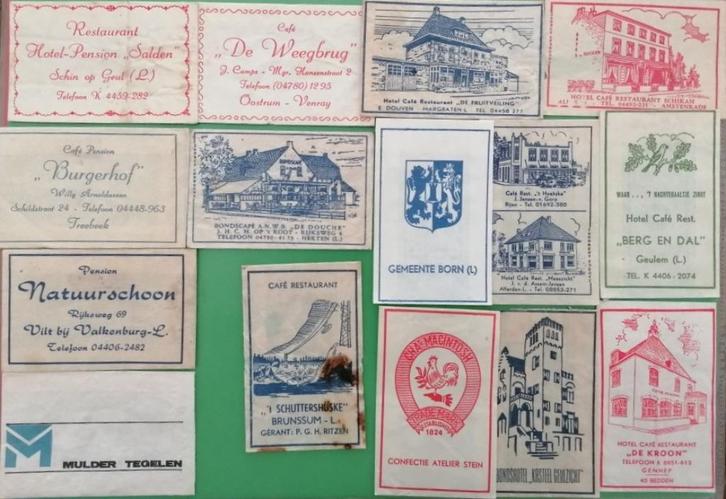 Restaurant
Hotel-Pension „Salden"
Schin op Geul (L.)
Telefoon K 4459-282
Café
„De Weegbrug"
J. Camps - Mgr. Hanssenstraat 2
Telefoon (04780) 12 95
Oostrum - Venray
Hotel Café Restaurant „DE FRUITVEILING"
E DOUVEN MARGRATEN L. TEL 04458 277
HOTEL CAFÉ RESTAURANT SCHIKAN
AMSTENRADE
Café Pension
„Burgerhof"
Willy Arnoldussen
Schildstraat 24 - Telefoon 04448-963
Treebeek
BONDSCAFÉ A.N.W.B. „DE DOUCHE"
J. H. C. H. OP 'T ROOT - RIJKSWEG 4
TELEFOON 04750 - 81 75 - HERTEN (L.)
GEMEENTE BORN (L)
Café Rest. „'t Hoekske"
J. Jansen-v. Gorp
Rijen - Tel. 01692-380
Hotel Café Rest. „Maaszicht"
J. v. d. Assem-Jansen
Afferden-L. - Tel. 08853-271
WAAR . . , 'T NACHTEGAALTJE ZINGT
Hotel Café Rest.
„BERG EN DAL"
Geulem (L.)
TEL. K 4406 - 2074
Pension
Natuurschoon
Rijksweg 69
Vilt bij Valkenburg-L.
Telefoon 04406-2482
CAFÉ RESTAURANT
„'t SCHUTTERSHUSKE"
BRUNSSUM - L.
GÉRANT: P. G. H. RITZEN
CHAS MACINTOSH
TRADE MARK
ESTABLISHED
1824
CONFECTIE ATELIER STEIN
BONDSHOTEL „KASTEEL GEULZICHT"
HOTEL CAFÉ RESTAURANT
„DE KROON"
TELEFOON K 8851-413
GENNEP
40 BEDDEN
M
MULDER TEGELEN